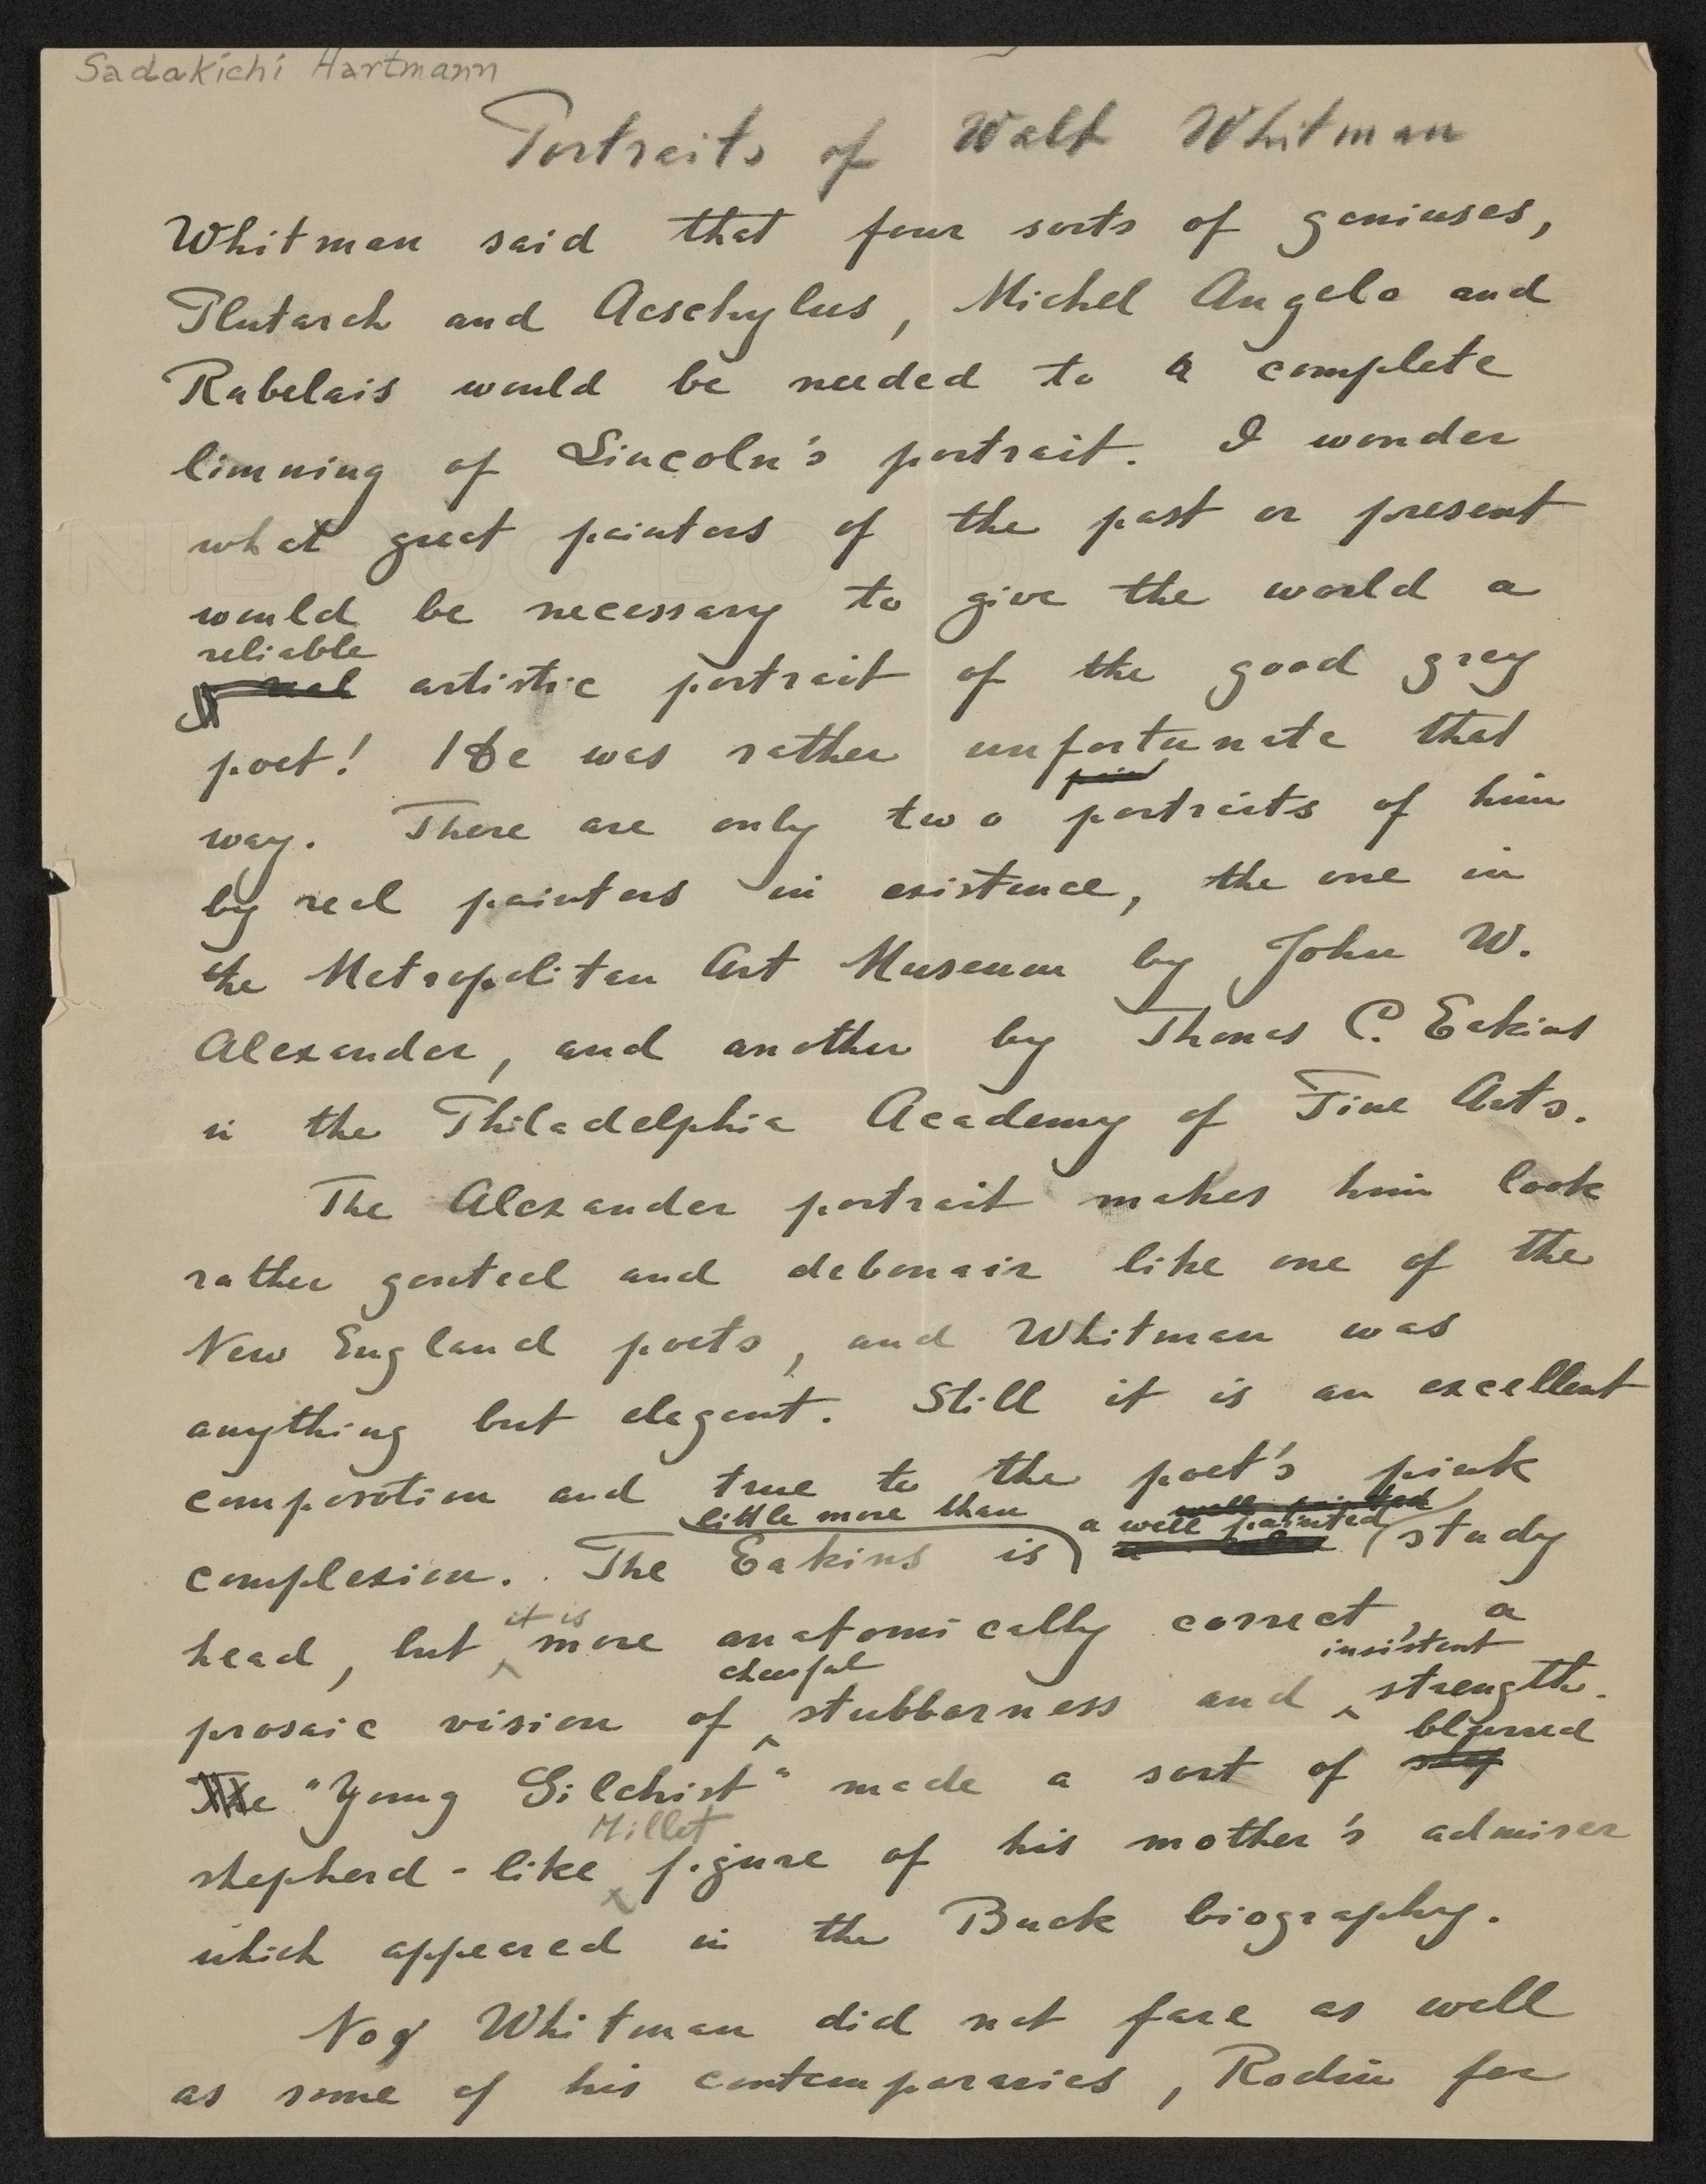 Sadakichi Hartmann
Portraits of Walt Whitman
Whitman said that four sorts of geniuses,
Plutarch and Aeschylus, Michel Angelo and
Rabelais would be needed to a complete
limning of Lincoln's portrait. I wonder
what great painters of the past or present
would be necessary to give the world a
reliable
real artistic portrait of the good grey
poet! He was rather unfortunate that
way. There are only two portraits of him
by real painters in existence, the one in
the Metropolitan Art Museum by John W.
Alexander, and another by Thomas C. Eakins
in the Philadelphia Academy of Fine Arts.
The Alexander portrait makes him look
rather genteel and debonair like one of the
New England poets, and Whitman was
anything but elegant. Still it is an excellent
composition and true to the poet's pink
well painted
little more than a well painted
complexion. The Eakins is study
it is
head, but more anatomically correct, a
cheerful insistent
prosaic vision of stubborness and strength.
blurred
The "Young Gilchist" made a sort of
Millet
shepherd-like figure of his mother's admirer
which appeared in the Buck biography.
No Whitman did not fare as well
as some of his contemporaries, Rodin for